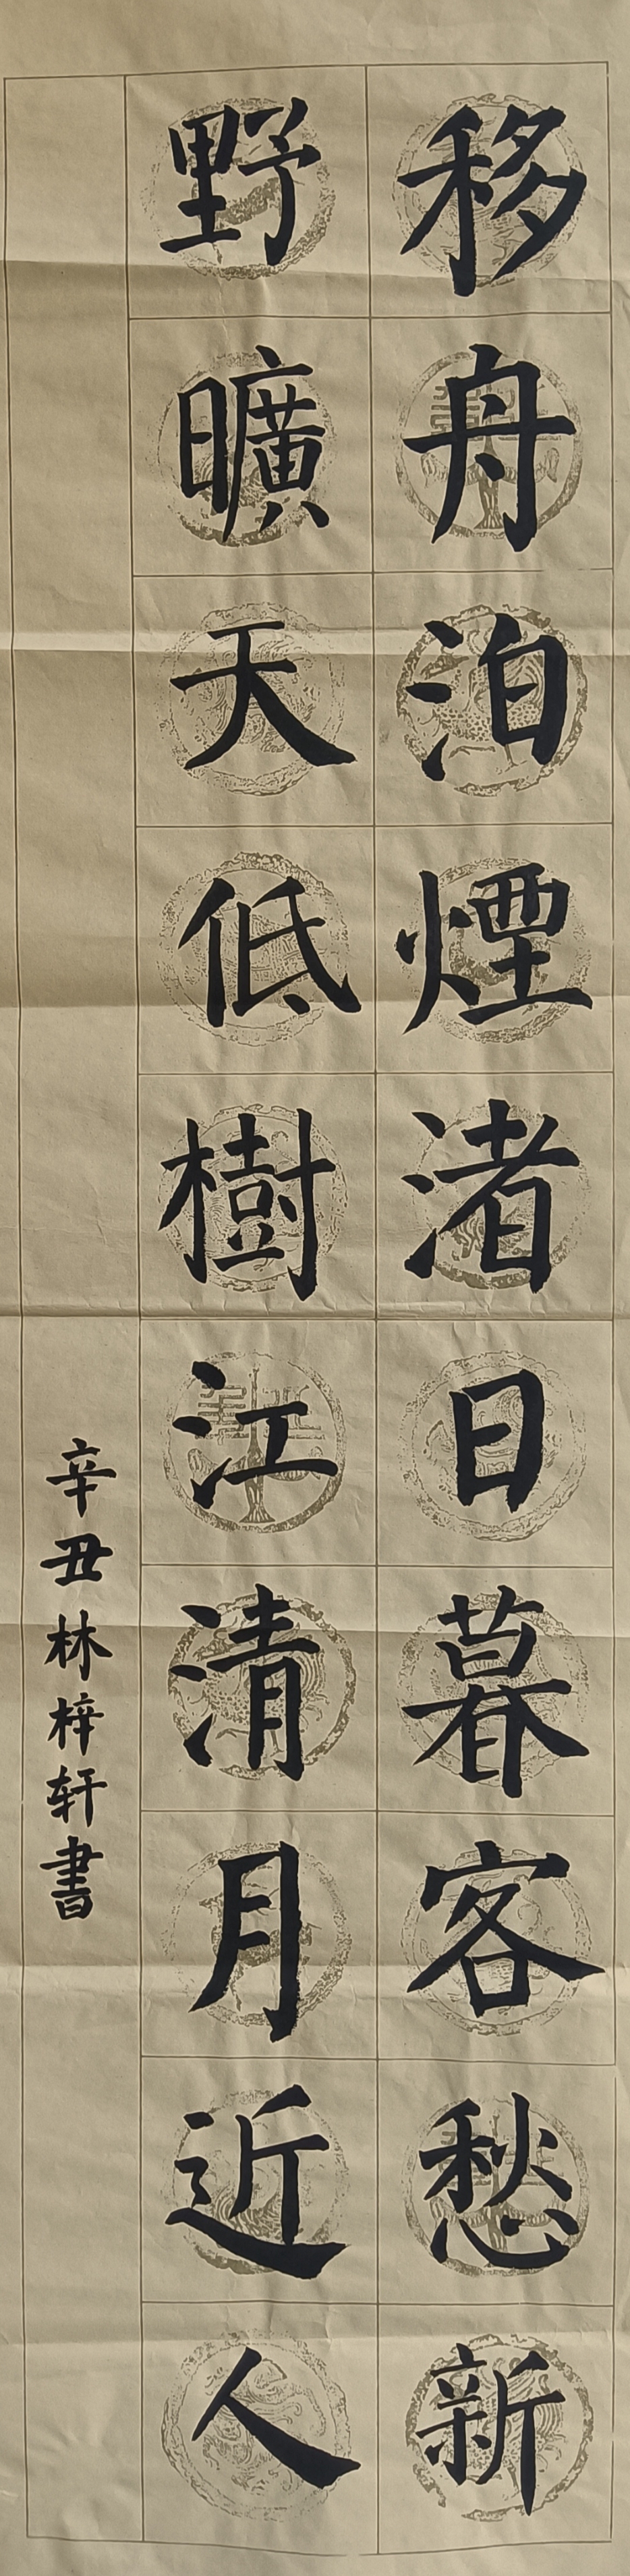 移舟泊煙渚日暮客愁新
野曠天低樹江清月近人
辛丑林梓轩書